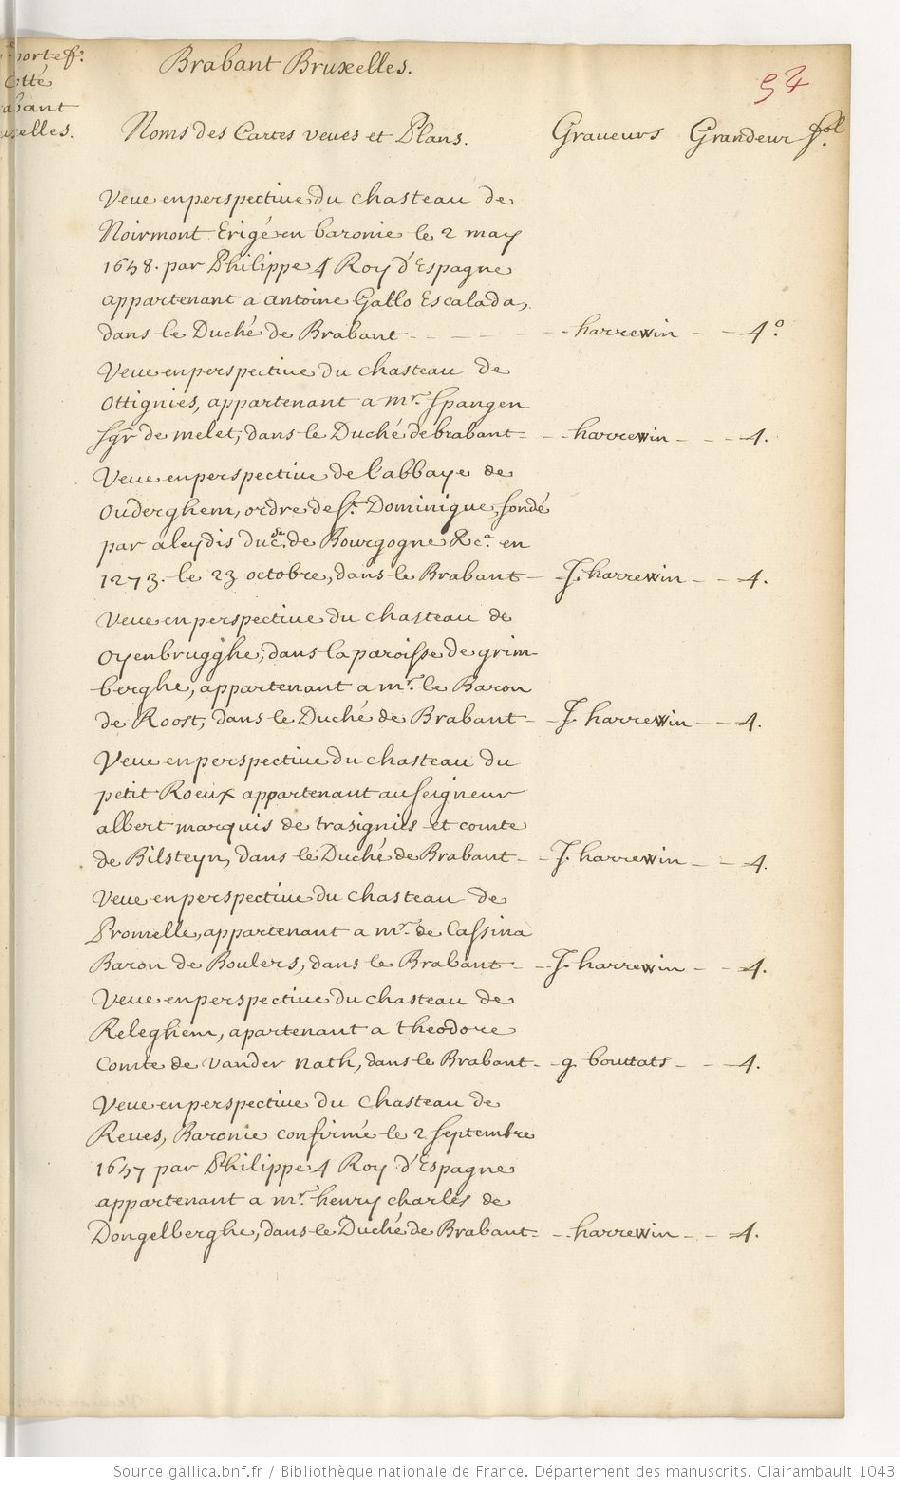 portef.
Cotté
abant
uxelles.
Brabant Bruxelles.
54
Noms des Cartes veues et Plans. Graveurs Grandeur fol.
Veue en perspective du chasteau de
Noirmont Erigé en baronie le 2 may
1658. par Philippe 4 Roy d'Espagne
appartenant a antoine Gallo Escalada,
dans le Duché de Brabant - - - - harrewin - - 4.º
Veue en perspective du chasteau de
Ottignies, appartenant a mr. Spangen
sgr. de melet, dans le Duché de brabant - - harrewin - - 4.
Veue en perspective de l'abbaye de
Ouderghem, ordre de St. Dominique, fondé
par aleydis ducsse. de Bourgogne &ca. en
1273. le 23 octobre, dans le Brabant - J. harrewin - - 4.
Veue en perspective du chasteau de
Oyenbrugghe, dans la paroisse de grim-
berghe, appartenant a mr. le Baron
de Roost, dans le Duché de Brabant - J. harrewin - - 4.
Veue en perspective du chasteau du
petit Roeux appartenant au seigneur
albert marquis de trasignies et comte
de Bilsteyn, dans le Duché de Brabant - - J. harrewin - - 4.
Veue en perspective du chasteau de
Promelle, appartenant a mr. de Cassina
Baron de Boulers, dans le Brabant - - J. harrewin - - 4.
Veue en perspective du chasteau de
Releghem, apartenant a theodore
Comte de vander nath, dans le Brabant - g. bouttats - - 4.
Veue en perspective du Chasteau de
Reves, Baronie confirmé le 2 septembre
1657 par Philippe 4 Roy d'Espagne
appartenant a mr. henry charles de
Dongelberghe, dans le Duché de Brabant - - harrewin - - 4.
Source gallica.bnf.fr / Bibliothèque nationale de France. Département des manuscrits. Clairambault 1043